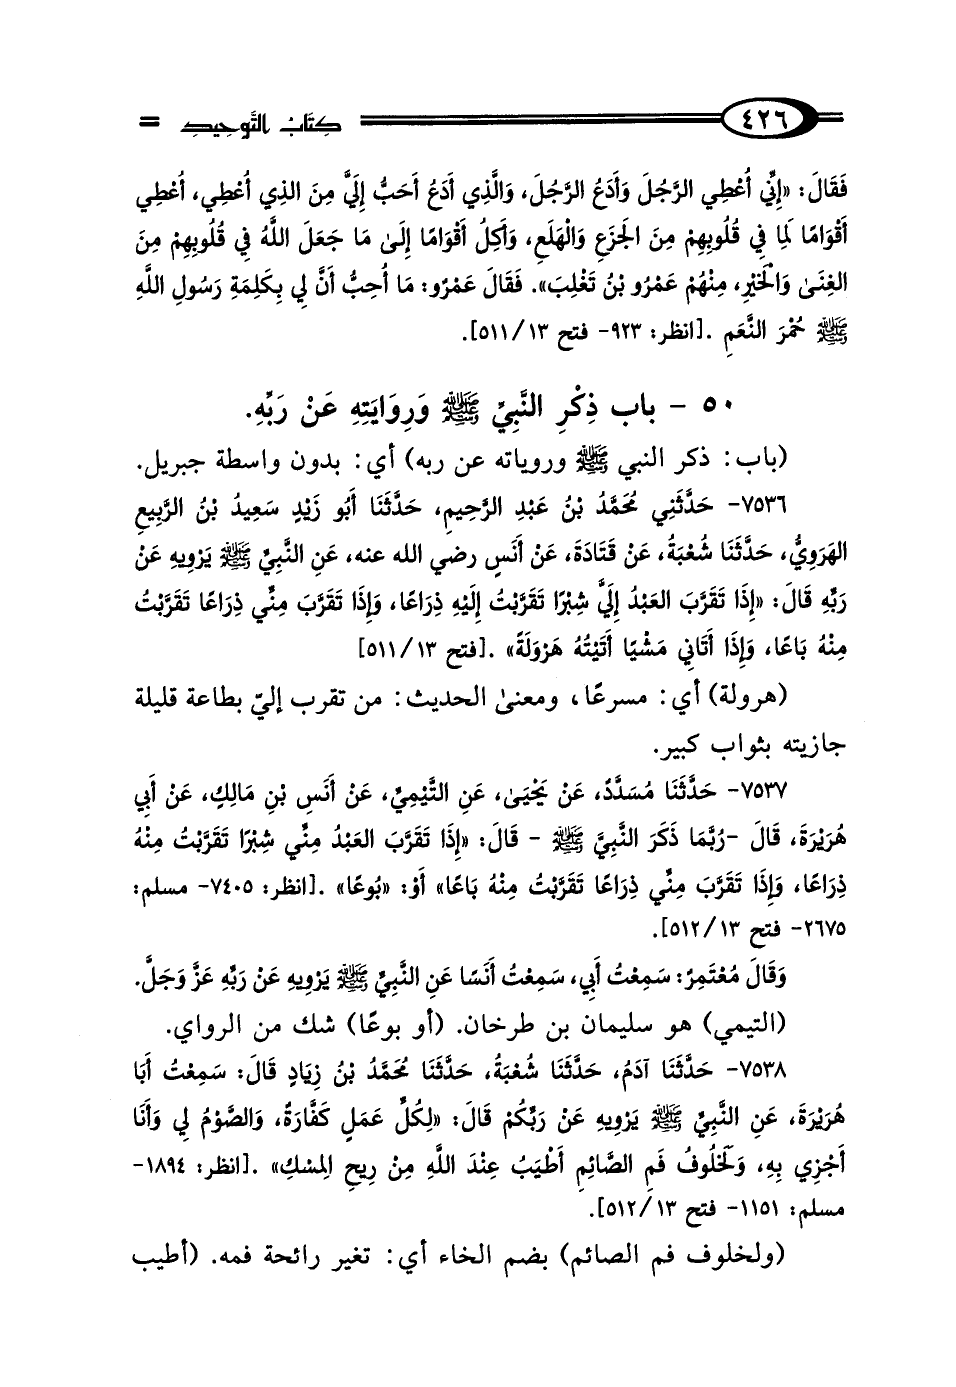 ٤٢٦ كتاب التوحيد =
فَقَالَ: «إِنِّي أُعْطِي الرَّجُلَ وَأَدَعُ الرَّجُلَ، وَالَّذِي أَدَعُ أَحَبُّ إِلَيَّ مِنَ الذِي أُعْطِي، أُعْطِي
أَقْوَامًا لِمَا فِي قُلُوبِهِمْ مِنَ الجَزَعِ وَالْهَلَعِ، وَأَكِلُ أَقْوَامًا إِلَىٰ مَا جَعَلَ اللَّهُ فِي قُلُوبِهِمْ مِنَ
الغِنَىٰ وَالْخَيْرِ، مِنْهُمْ عَمْرُو بْنُ تَغْلِبَ». فَقَالَ عَمْرُو: مَا أُحِبُّ أَنَّ لِي بِكَلِمَةِ رَسُولِ اللَّهِ
ﷺ حُمْرَ النَّعَمِ .[انظر: ٩٢٣- فتح ٥١١/١٣].
٥٠ - باب ذِكْرِ النَّبِيِّ ﷺ وَرِوَايَتِهِ عَنْ رَبِّهِ.
(باب: ذكر النبي ﷺ وروياته عن ربه) أي: بدون واسطة جبريل.
٧٥٣٦- حَدَّثَنِي مُحَمَّدُ بْنُ عَبْدِ الرَّحِيمِ، حَدَّثَنَا أَبُو زَيْدٍ سَعِيدُ بْنُ الرَّبِيعِ
الهَرَوِيُّ، حَدَّثَنَا شُعْبَةُ، عَنْ قَتَادَةَ، عَنْ أَنَسٍ رضي الله عنه، عَنِ النَّبِيِّ ﷺ يَرْوِيهِ عَنْ
رَبِّهِ قَالَ: «إِذَا تَقَرَّبَ العَبْدُ إِلَيَّ شِبْرًا تَقَرَّبْتُ إِلَيْهِ ذِرَاعًا، وَإِذَا تَقَرَّبَ مِنِّي ذِرَاعًا تَقَرَّبْتُ
مِنْهُ بَاعًا، وَإِذَا أَتَانِي مَشْيًا أَتَيْتُهُ هَرْوَلَةً» .[فتح ٥١١/١٣]
(هرولة) أي: مسرعًا، ومعنىٰ الحديث: من تقرب إليّ بطاعة قليلة
جازيته بثواب كبير.
٧٥٣٧- حَدَّثَنَا مُسَدَّدٌ، عَنْ يَحْيَىٰ، عَنِ التَّيْمِيِّ، عَنْ أَنَسِ بْنِ مَالِكٍ، عَنْ أَبِي
هُرَيْرَةَ، قَالَ -رُبَّمَا ذَكَرَ النَّبِيَّ ﷺ - قَالَ: «إِذَا تَقَرَّبَ العَبْدُ مِنِّي شِبْرًا تَقَرَّبْتُ مِنْهُ
ذِرَاعًا، وَإِذَا تَقَرَّبَ مِنِّي ذِرَاعًا تَقَرَّبْتُ مِنْهُ بَاعًا» أَوْ: «بُوعًا» .[انظر: ٧٤٠٥- مسلم:
٢٦٧٥- فتح ٥١٢/١٣].
وَقَالَ مُعْتَمِرٌ: سَمِعْتُ أَبِي، سَمِعْتُ أَنَسًا عَنِ النَّبِيِّ ﷺ يَرْوِيهِ عَنْ رَبِّهِ عَزَّ وَجَلَّ.
(التيمي) هو سليمان بن طرخان. (أو بوعًا) شك من الرواي.
٧٥٣٨- حَدَّثَنَا آدَمُ، حَدَّثَنَا شُعْبَةُ، حَدَّثَنَا مُحَمَّدُ بْنُ زِيَادٍ قَالَ: سَمِعْتُ أَبَا
هُرَيْرَةَ، عَنِ النَّبِيِّ ﷺ يَرْوِيهِ عَنْ رَبِّكُمْ قَالَ: «لِكُلِّ عَمَلٍ كَفَّارَةٌ، وَالصَّوْمُ لِي وَأَنَا
أَجْزِي بِهِ، وَلَخُلُوفُ فَمِ الصَّائِمِ أَطْيَبُ عِنْدَ اللَّهِ مِنْ رِيحِ المِسْكِ» .[انظر: ١٨٩٤-
مسلم: ١١٥١- فتح ٥١٢/١٣].
(ولخلوف فم الصائم) بضم الخاء أي: تغير رائحة فمه. (أطيب